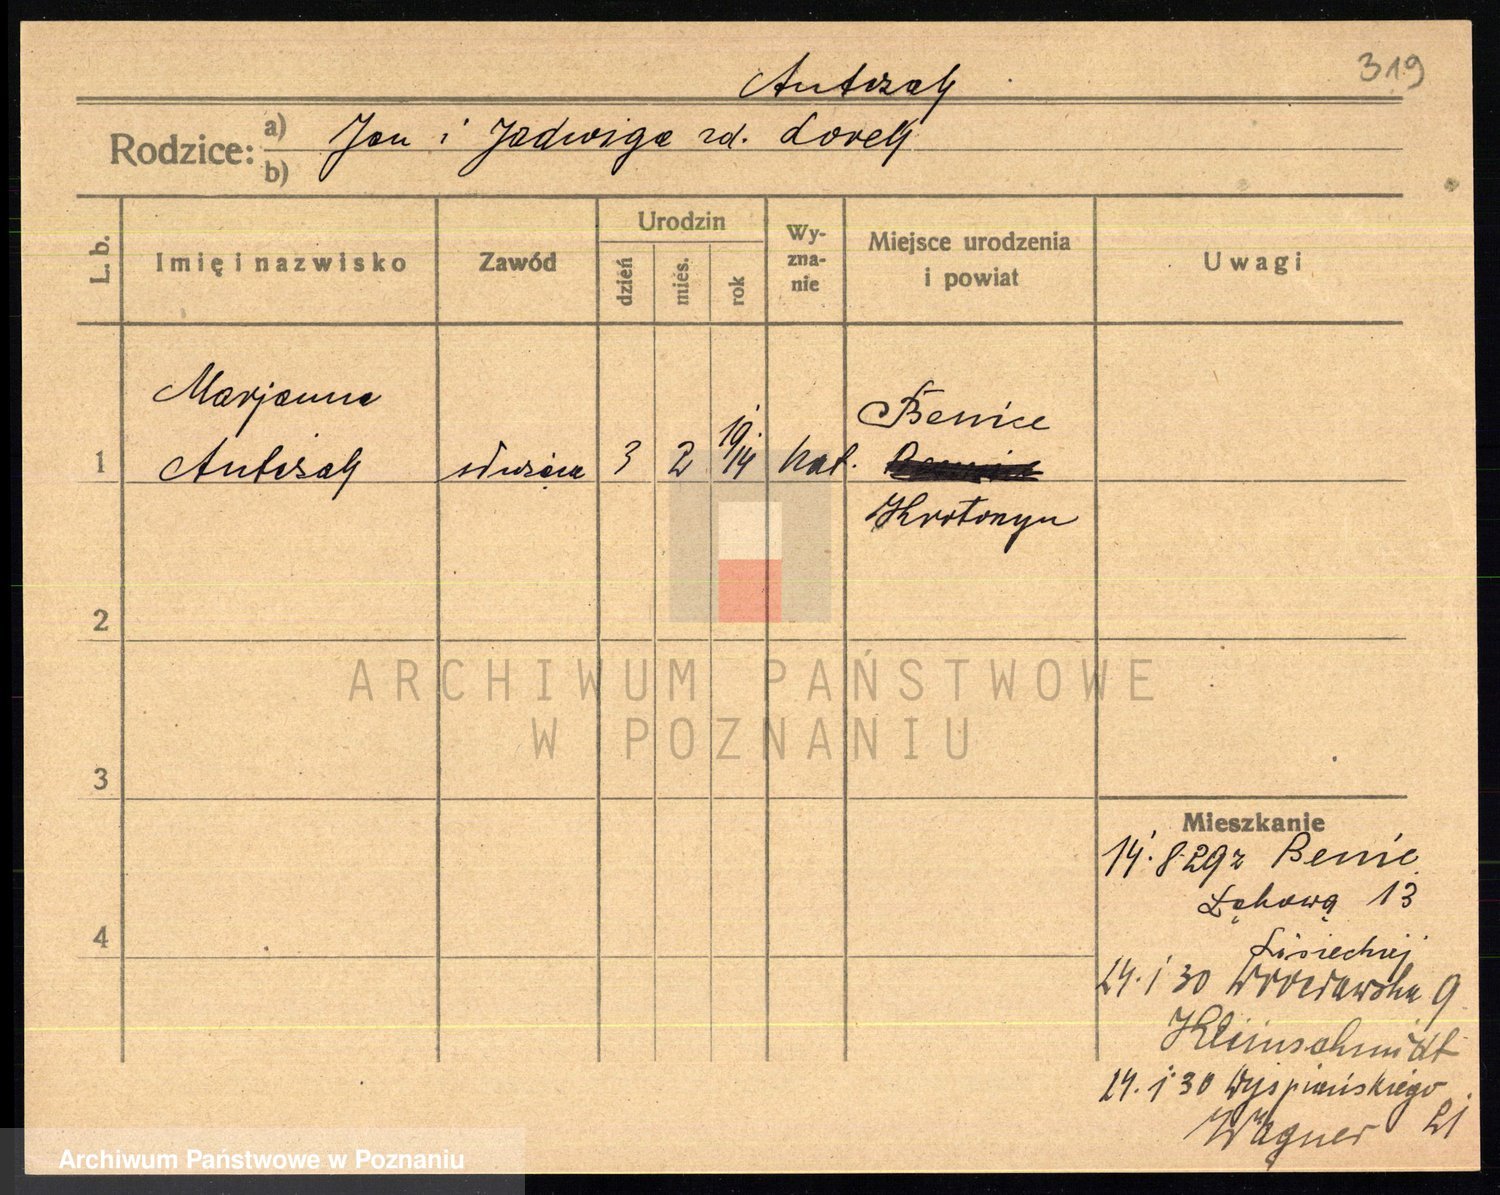 319
Antczak
Rodzice: a) Jan i Jadwiga zd. Lorek
b)
L. b. Imię i nazwisko Zawód Urodzin dzień mies. rok Wyznanie Miejsce urodzenia i powiat Uwagi
Marjanna
Benice
1 Antczak służąca 3 2 1914 kat.
Krotoszyn
2
ARCHIWUM PAŃSTWOWE
W POZNANIU
3
Mieszkanie
14. 8 29 z Benic
Łąkowa 13
4
24. 1 30 Wrocławska 9
Kleinschmidt
24. 1 30 Wyspiańskiego
Wagner 21
Archiwum Państwowe w Poznaniu